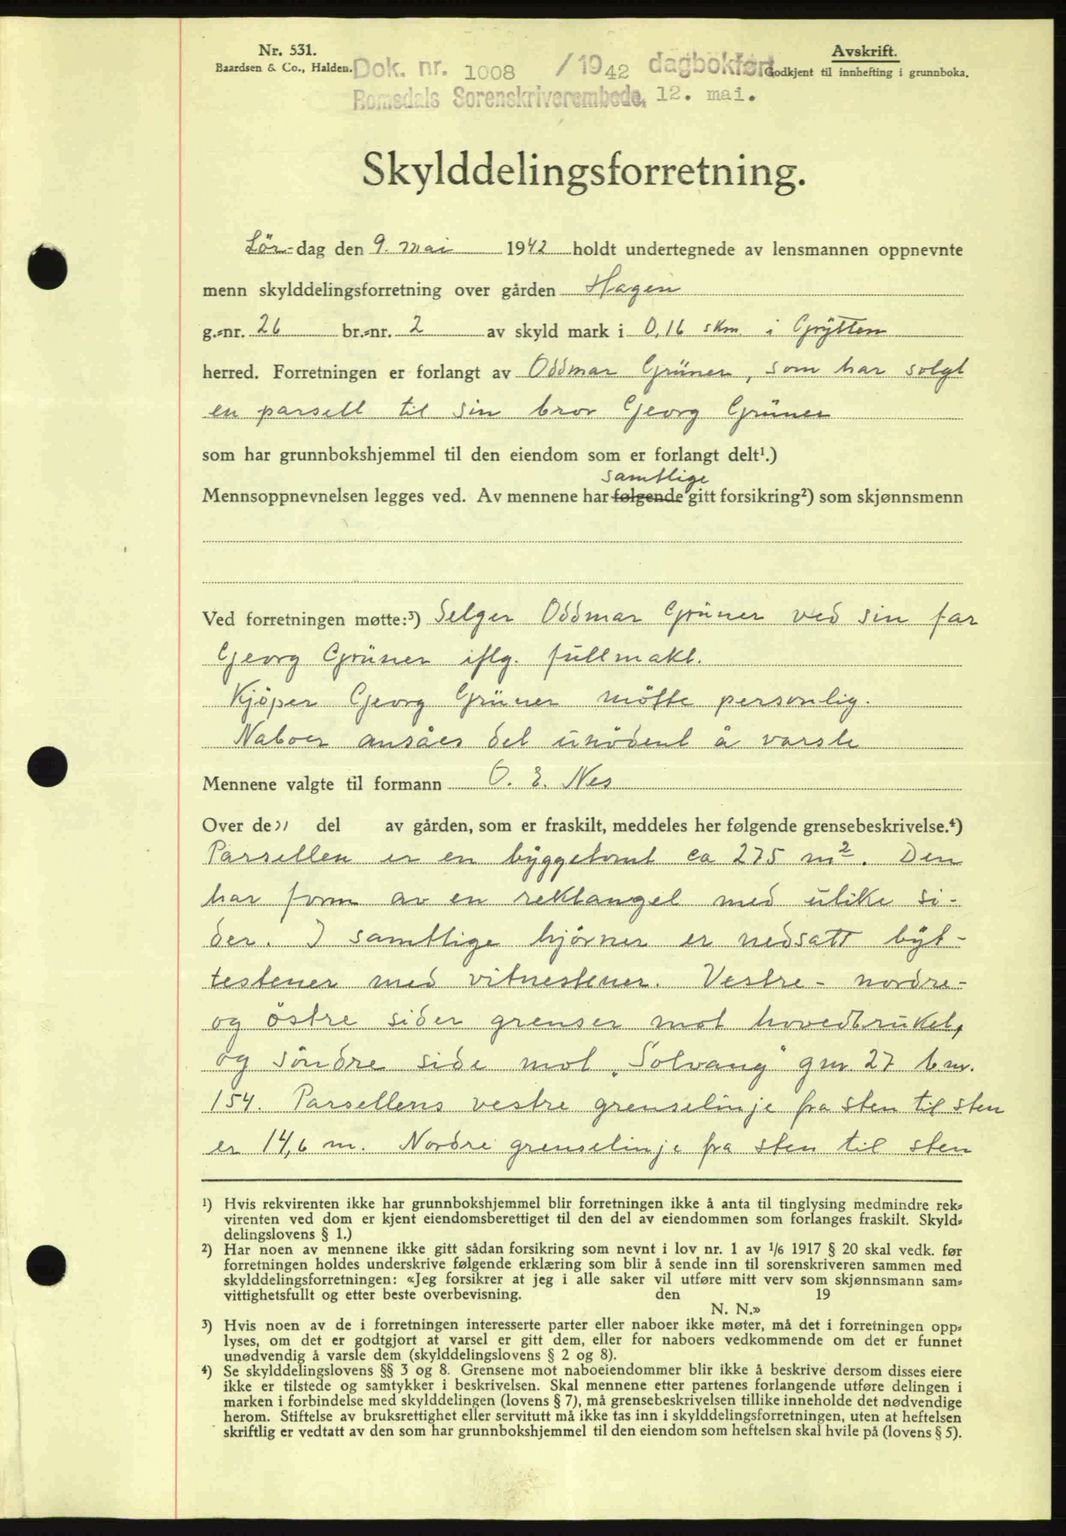 Nr. 531.
Baardsen & Co., Halden.
Dok. nr. 1008 /1942 dagbokført
Romsdals Sorenskriverembede, 12. mai.
Avskrift.
Godkjent til innhefting i grunnboka.
Skylddelingsforretning.
Lör-dag den 9. mai 1942 holdt undertegnede av lensmannen oppnevnte
menn skylddelingsforretning over gården Hagen
g.-nr. 26 br.-nr. 2 av skyld mark i 0,16 skm i Grytten
herred. Forretningen er forlangt av Oddmar Grüner, som har solgt
en parsell til sin bror Georg Grüner
som har grunnbokshjemmel til den eiendom som er forlangt delt¹.)
samtlige
Mennsoppnevnelsen legges ved. Av mennene har følgende gitt forsikring²) som skjønnsmenn
Ved forretningen møtte:³) Selger Oddmar Grüner ved sin far
Georg Grüner iflg. fullmakt.
Kjöper Georg Grüner mötte personlig.
Naboer ansåes det unödent å varsle
Mennene valgte til formann O. E. Nes
Over den del av gården, som er fraskilt, meddeles her følgende grensebeskrivelse.⁴)
Parsellen er en byggetomt ca 275 m². Den
har form av en rektangel med ulike si-
der. I samtlige hjörner er nedsatt byt-
testener med vitnestener. Vestre- nordre-
og östre sider grenser mot hovedbruket,
og söndre side mot „Solvang" gnr. 27 b.nr.
154. Parsellens vestre grenselinje fra sten til sten
er 14,6 m. Nordre grenselinje fra sten til sten
¹) Hvis rekvirenten ikke har grunnbokshjemmel blir forretningen ikke å anta til tinglysing medmindre rek-
virenten ved dom er kjent eiendomsberettiget til den del av eiendommen som forlanges fraskilt. Skyld-
delingslovens § 1.)
²) Har noen av mennene ikke gitt sådan forsikring som nevnt i lov nr. 1 av 1/6 1917 § 20 skal vedk. før
forretningen holdes underskrive følgende erklæring som blir å sende inn til sorenskriveren sammen med
skylddelingsforretningen: «Jeg forsikrer at jeg i alle saker vil utføre mitt verv som skjønnsmann sam-
vittighetsfullt og etter beste overbevisning. den 19
N. N.»
³) Hvis noen av de i forretningen interesserte parter eller naboer ikke møter, må det i forretningen opp-
lyses, om det er godtgjort at varsel er gitt dem, eller for naboers vedkommende om det er funnet
unødvendig å varsle dem (skylddelingslovens § 2 og 8).
⁴) Se skylddelingslovens §§ 3 og 8. Grensene mot naboeiendommer blir ikke å beskrive dersom disses eiere
ikke er tilstede og samtykker i beskrivelsen. Skal mennene etter partenes forlangende utføre delingen i
marken i forbindelse med skylddelingen (lovens § 7), må grensebeskrivelsen tillike inneholde det nødvendige
herom. Stiftelse av bruksrettighet eller servitutt må ikke tas inn i skylddelingsforretningen, uten at heftelsen
skriftlig er vedtatt av den som har grunnbokshjemmel til den eiendom som heftelsen skal hvile på (lovens § 5).